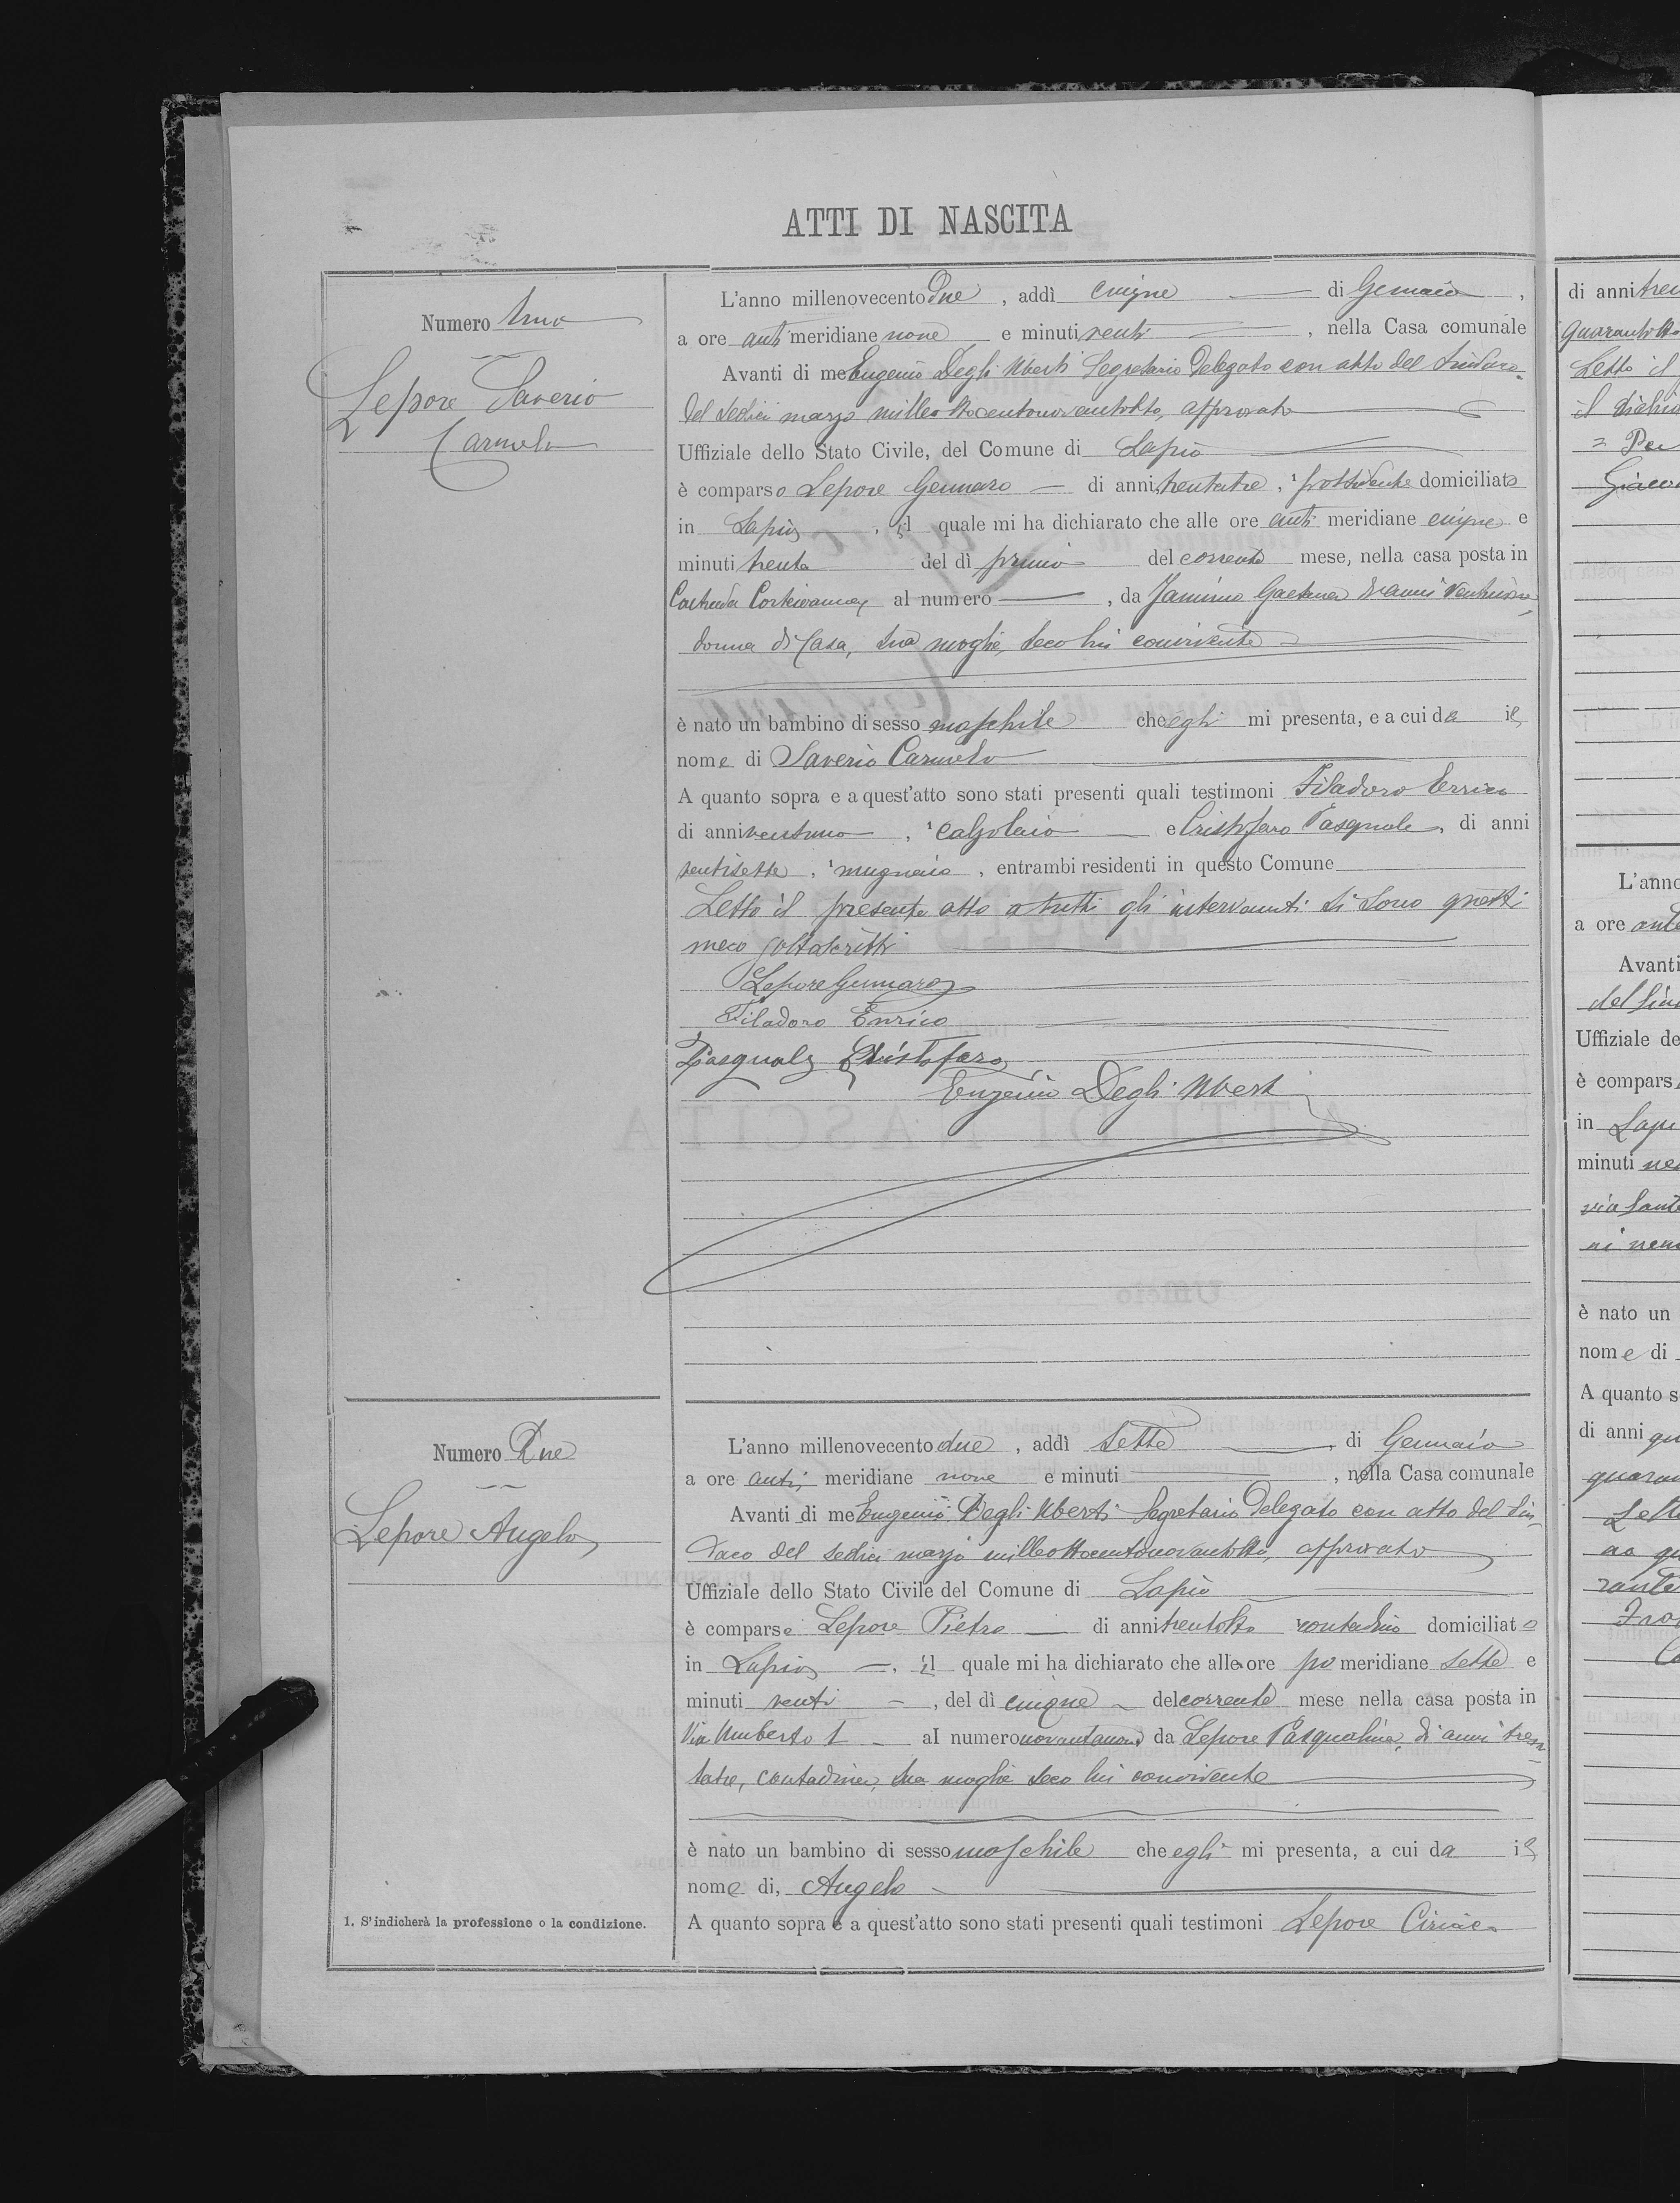 ATTI DI NASCITA
Numero Uno
Lepore Saverio
Carmelo
L'anno millenovecento Due, addì cinque di Gennaio,
a ore anti meridiane nove e minuti venti, nella Casa comunale
Avanti di me Eugenio Degli Uberti Segretario Delegato con atto del Sindaco
del sedici marzo milleottocentonovantotto, approvato
Uffiziale dello Stato Civile, del Comune di Lapio
è comparso Lepore Gennaro di anni trentatre, ¹ possidente domiciliato
in Lapio, il quale mi ha dichiarato che alle ore anti meridiane cinque e
minuti trenta del dì primo del corrente mese, nella casa posta in
Contrada al numero, da Gaetana di anni
donna di Casa, sua moglie, seco lui convivente
è nato un bambino di sesso maschile che egli mi presenta, e a cui da il
nome di Saverio Carmelo
A quanto sopra e a quest'atto sono stati presenti quali testimoni Filadoro Errico
di anni ventuno, ¹ calzolaio e Cristofaro Pasquale, di anni
ventisette, ¹ mugnaio, entrambi residenti in questo Comune
Letto il presente atto a tutti gli intervenuti si sono questi
meco sottoscritti
Lepore Gennaro
Filadoro Enrico
Pasquale Cristofaro
Eugenio Degli Uberti
Numero Due
Lepore Angelo
L'anno millenovecento due, addì sette di Gennaio
a ore anti meridiane nove e minuti, nella Casa comunale
Avanti di me Eugenio Degli Uberti Segretario Delegato con atto del Sin
daco del sedici marzo milleottocentonovantotto, approvato
Uffiziale dello Stato Civile del Comune di Lapio
è comparso Lepore Pietro di anni trentotto contadino domiciliato
in Lapio, il quale mi ha dichiarato che alle ore po meridiane sette e
minuti venti, del dì cinque del corrente mese nella casa posta in
Via Umberto I al numero da Lepore Pasqualina, di anni tren
tatre, contadina, sua moglie seco lui convivente
è nato un bambino di sesso maschile che egli mi presenta, a cui da il
nome di, Angelo
A quanto sopra e a quest'atto sono stati presenti quali testimoni Lepore Ciriaco
1. S'indicherà la professione o la condizione.
di anni
quarantotto
Letto il
il
Per
L'anno
a ore ante
Avanti
del
Uffiziale de
è compars
in Lapi
minuti
via
è nato un
nome di
A quanto s
di anni